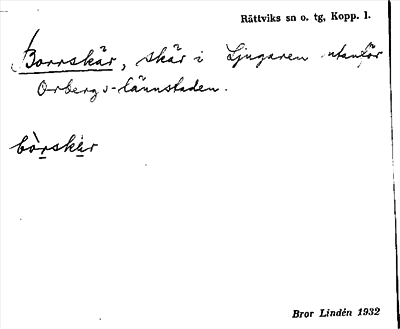 Rättviks sn o. tg, Kopp. l.
Borrskär, skär i Ljugaren utanför
Orbergs-lännstaden.
bòrskèr
Bror Lindén 1932